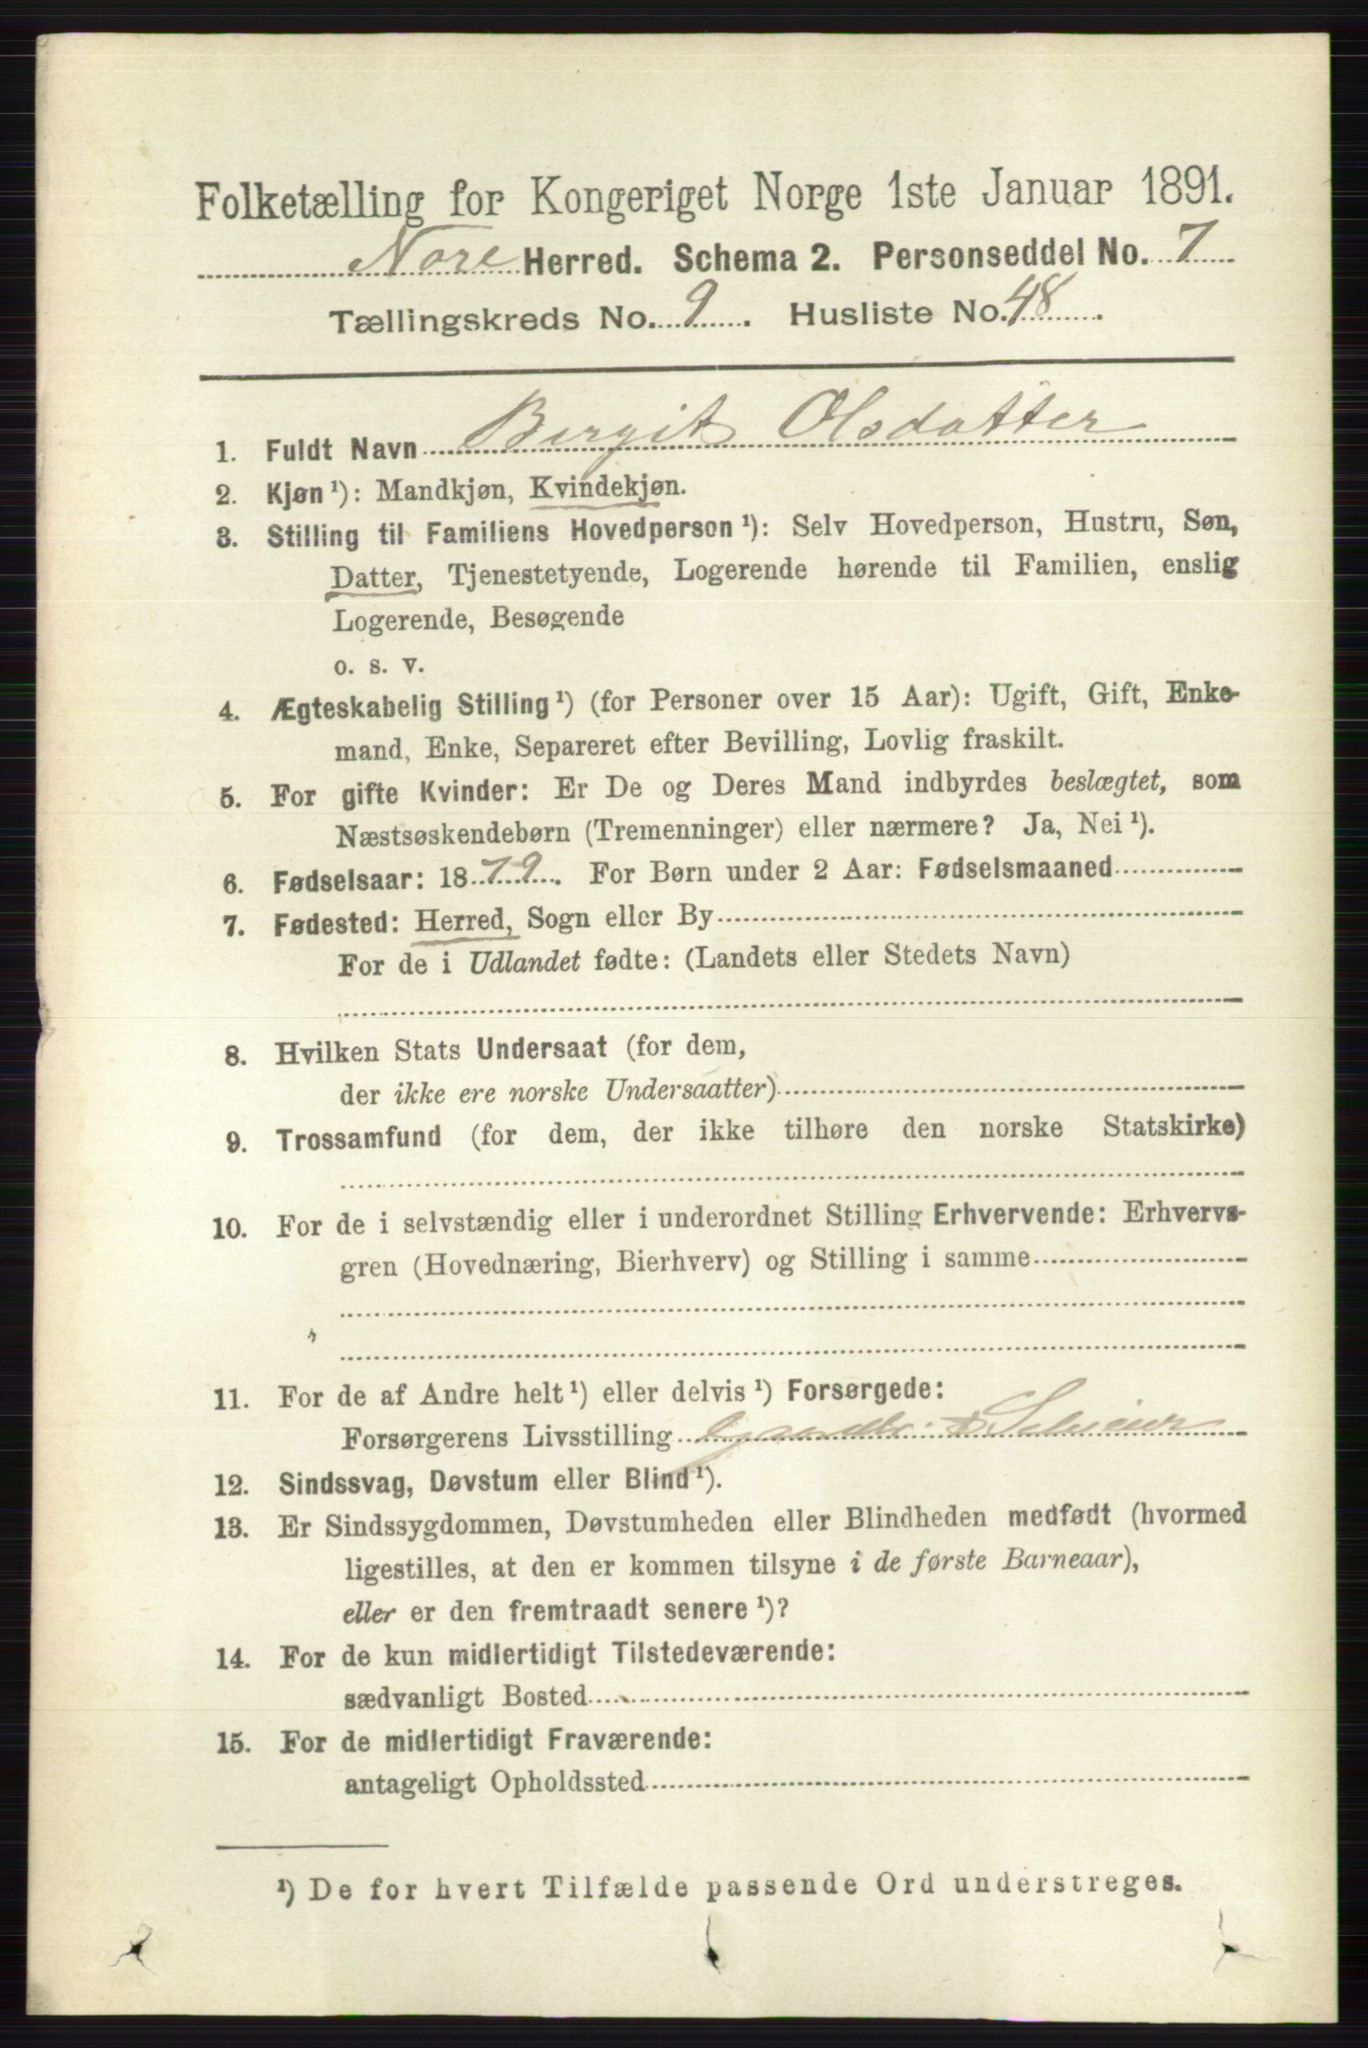 Folketælling for Kongeriget Norge 1ste Januar 1891.
Nore Herred. Schema 2. Personseddel No. 7
Tællingskreds No. 9. Husliste No. 48.
1. Fuldt Navn Bergit Olsdatter
2. Kjøn ¹): Mandkjøn, Kvindekjøn.
3. Stilling til Familiens Hovedperson ¹): Selv Hovedperson, Hustru, Søn,
Datter, Tjenestetyende, Logerende hørende til Familien, enslig
Logerende, Besøgende
o. s. v.
4. Ægteskabelig Stilling ¹) (for Personer over 15 Aar): Ugift, Gift, Enke-
mand, Enke, Separeret efter Bevilling, Lovlig fraskilt.
5. For gifte Kvinder: Er De og Deres Mand indbyrdes beslægtet, som
Næstsøskendebørn (Tremenninger) eller nærmere? Ja, Nei ¹).
6. Fødselsaar: 1879. For Børn under 2 Aar: Fødselsmaaned
7. Fødested: Herred, Sogn eller By
For de i Udlandet fødte: (Landets eller Stedets Navn)
8. Hvilken Stats Undersaat (for dem,
der ikke ere norske Undersaatter)
9. Trossamfund (for dem, der ikke tilhøre den norske Statskirke)
10. For de i selvstændig eller i underordnet Stilling Erhvervende: Erhvervs-
gren (Hovednæring, Bierhverv) og Stilling i samme
11. For de af Andre helt ¹) eller delvis ¹) Forsørgede:
Forsørgerens Livsstilling Gaardbr. & Seleier
12. Sindssvag, Døvstum eller Blind ¹).
13. Er Sindssygdommen, Døvstumheden eller Blindheden medfødt (hvormed
ligestilles, at den er kommen tilsyne i de første Barneaar),
eller er den fremtraadt senere ¹)?
14. For de kun midlertidigt Tilstedeværende:
sædvanligt Bosted
15. For de midlertidigt Fraværende:
antageligt Opholdssted
¹) De for hvert Tilfælde passende Ord understreges.